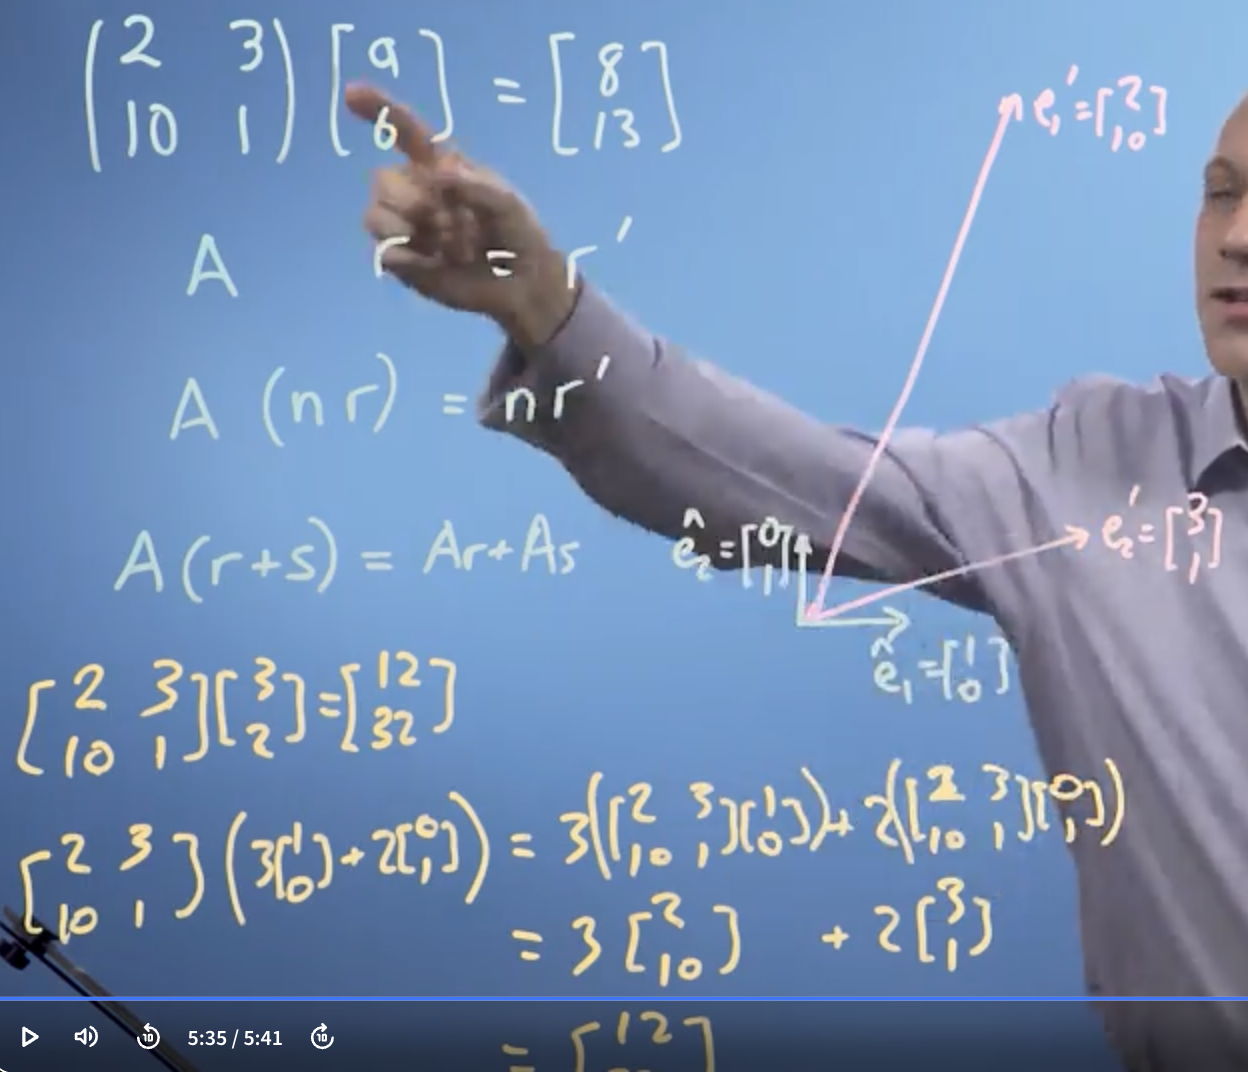 (2 3
10 1) [a
b] = [8
13]
A r = r'
A (n r) = n r'
A (r+s) = Ar + As
e₁' = [2
10]
ê₂ = [0
1]
e₂' = [3
1]
ê₁ = [1
0]
[2 3
10 1] [3
2] = [12
32]
[2 3
10 1] (3[1
0] + 2[0
1]) = 3([2 3
10 1][1
0]) + 2([2 3
10 1][0
1])
= 3 [2
10] + 2 [3
1]
= [12
5:35 / 5:41
10
10